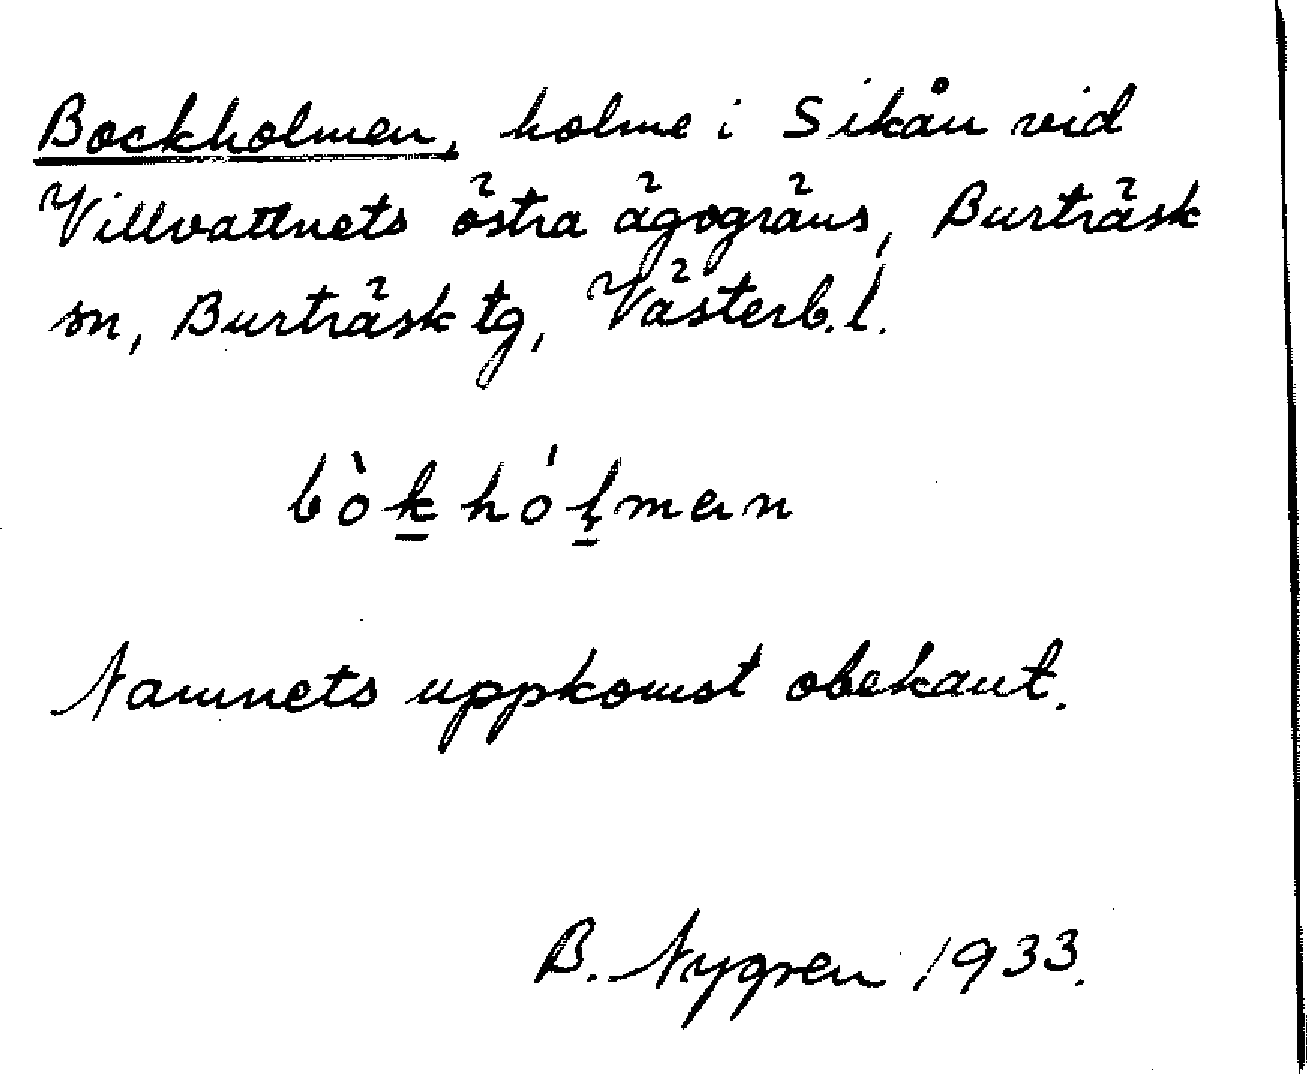 Bockholmen, holme i Sikån vid
Villvattnets östra ägogräns, Burträsk
sn, Burträsk tg, Västerb.l.
bòk̲hól̲man
Namnets uppkomst obekant.
B. Nygren 1933.